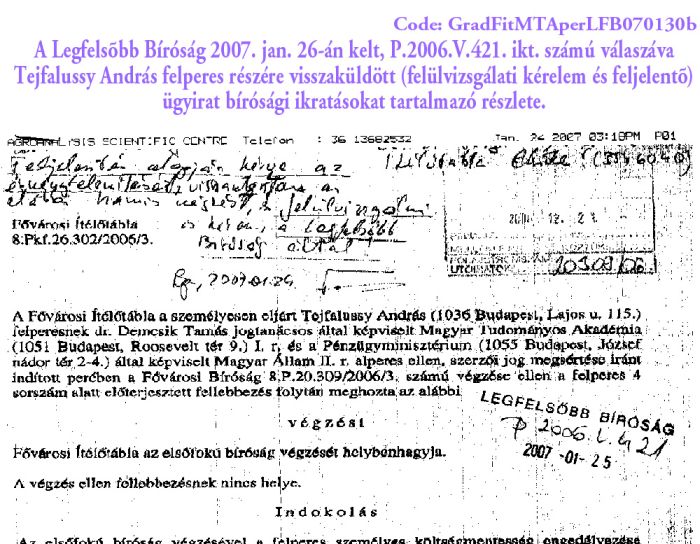 Code: GradFitMTAperLFB070130b
A Legfelsõbb Bíróság 2007. jan. 26-án kelt, P.2006.V.421. ikt. számú válaszáva
Tejfalussy András felperes részére visszaküldött (felülvizsgálati kérelem és feljelentõ)
ügyirat bírósági ikratásokat tartalmazó részlete.
AGROANALYSIS SCIENTIFIC CENTRE Telefon : 36 13682532 Jan. 24 2007 03:18PM P01
Feljelentés alapján kérve az
felülvizsgálni
Fővárosi Ítélőtábla
8.Pkf.26.302/2006/3.
és kérem, a Legfelsőbb
Bíróság által
Bp, 2007.01.24
20309/06
A Fővárosi Ítélőtábla a személyesen eljárt Tejfalussy András (1036 Budapest, Lajos u. 115.)
felperesnek dr. Demcsik Tamás jogtanácsos által képviselt Magyar Tudományos Akadémia
(1051 Budapest, Roosevelt tér 9.) I. r. és a Pénzügyminisztérium (1055 Budapest, József
nádor tér 2-4.) által képviselt Magyar Állam II. r. alperes ellen, szerzői jog megsértése iránt
indított perében a Fővárosi Bíróság 8.P.20.309/2006/3. számú végzése ellen a felperes 4
sorszám alatt előterjesztett fellebbezés folytán meghozta az alábbi
LEGFELSŐBB BÍRÓSÁG
P 2006.V.421
2007 -01- 25
végzést
Fővárosi Ítélőtábla az elsőfokú bíróság végzését helybenhagyja.
A végzés ellen fellebbezésnek nincs helye.
Indokolás
Az elsőfokú bíróság végzésével a felperes személyes költségmentesség engedélyezése